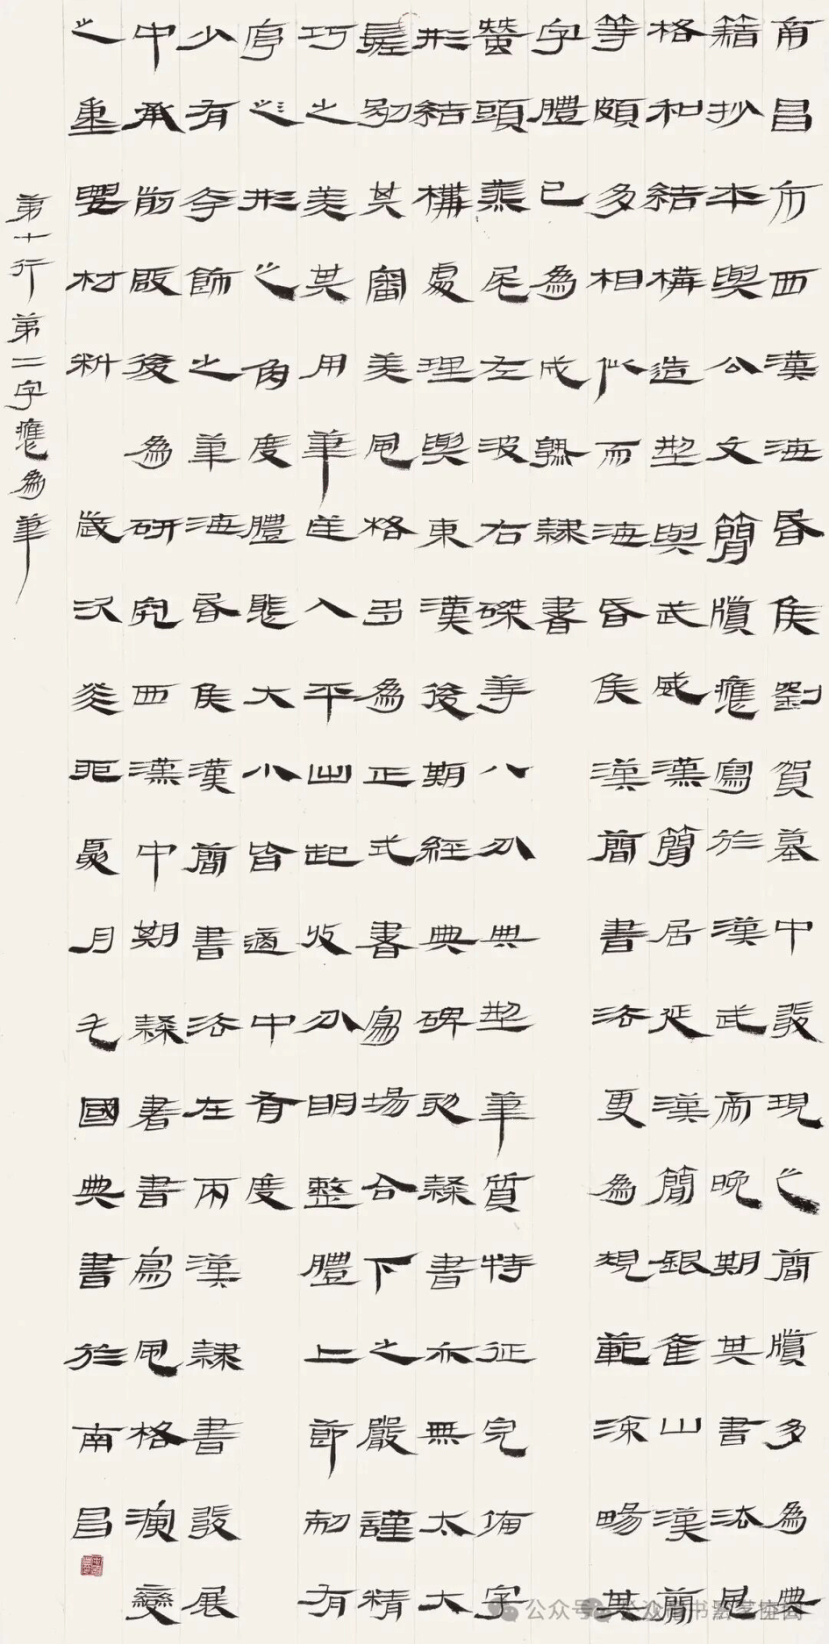 南昌市西漢海昏侯劉賀墓中發現之簡牘多為典
籍抄本與公文簡牘應寫於漢武帝晚期其書法風
格和結構造型與武威漢簡居延漢簡銀雀山漢簡
等頗多相似而海昏侯漢簡書法更為規範流暢其
字體已為成熟隸書
蠶頭燕尾左波右磔等八分典型筆質特征完備字
形結構處理與東漢後期經典碑刻隸書亦無太大
差別其審美風格多為正式書寫場合下之嚴謹精
巧之美其用筆逆入平出起收分明整體上節制有
序之形之角度體態大小皆適中有度
少有夸飾之筆海昏侯漢簡書法在兩漢隸書發展
中承前啟後為研究西漢中期隸書書寫風格演變
之重要材料 歲次癸卯夏月毛國典書於南昌
第十行第二字應為筆
公众号